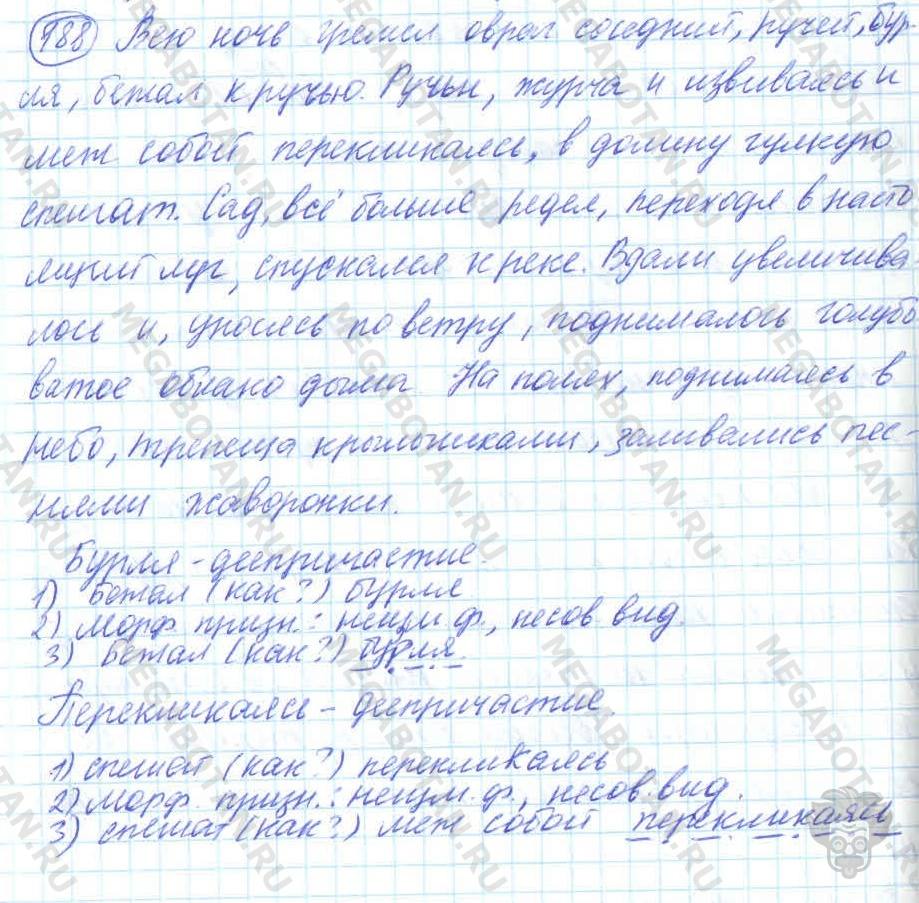 988 Всю ночь гремел овраг соседний, ручей, бур-
ля, бежал к ручью. Ручьи, журча и извиваясь и
меж собой перекликаясь, в долину гулкую
спешат. Сад, всё больше редея, переходя в насто
ящий луг, спускался к реке. Вдали увеличива-
лось и, уносясь по ветру, поднималось голубо
ватое облако дыма На полях, поднимаясь в
небо, трепеща крылышками, заливались пес-
нями жаворонки.
Бурля - деепричастие.
1) бежал (как?) бурля
2) морф. призн.: неизм. ф., несов. вид.
3) бежал (как?) бурля.
Перекликаясь - деепричастие.
1) спешат (как?) перекликаясь
2) морф. призн.: неизм. ф., несов. вид.
3) спешат (как?) меж собой перекликаясь
MEGABOTAN.RU